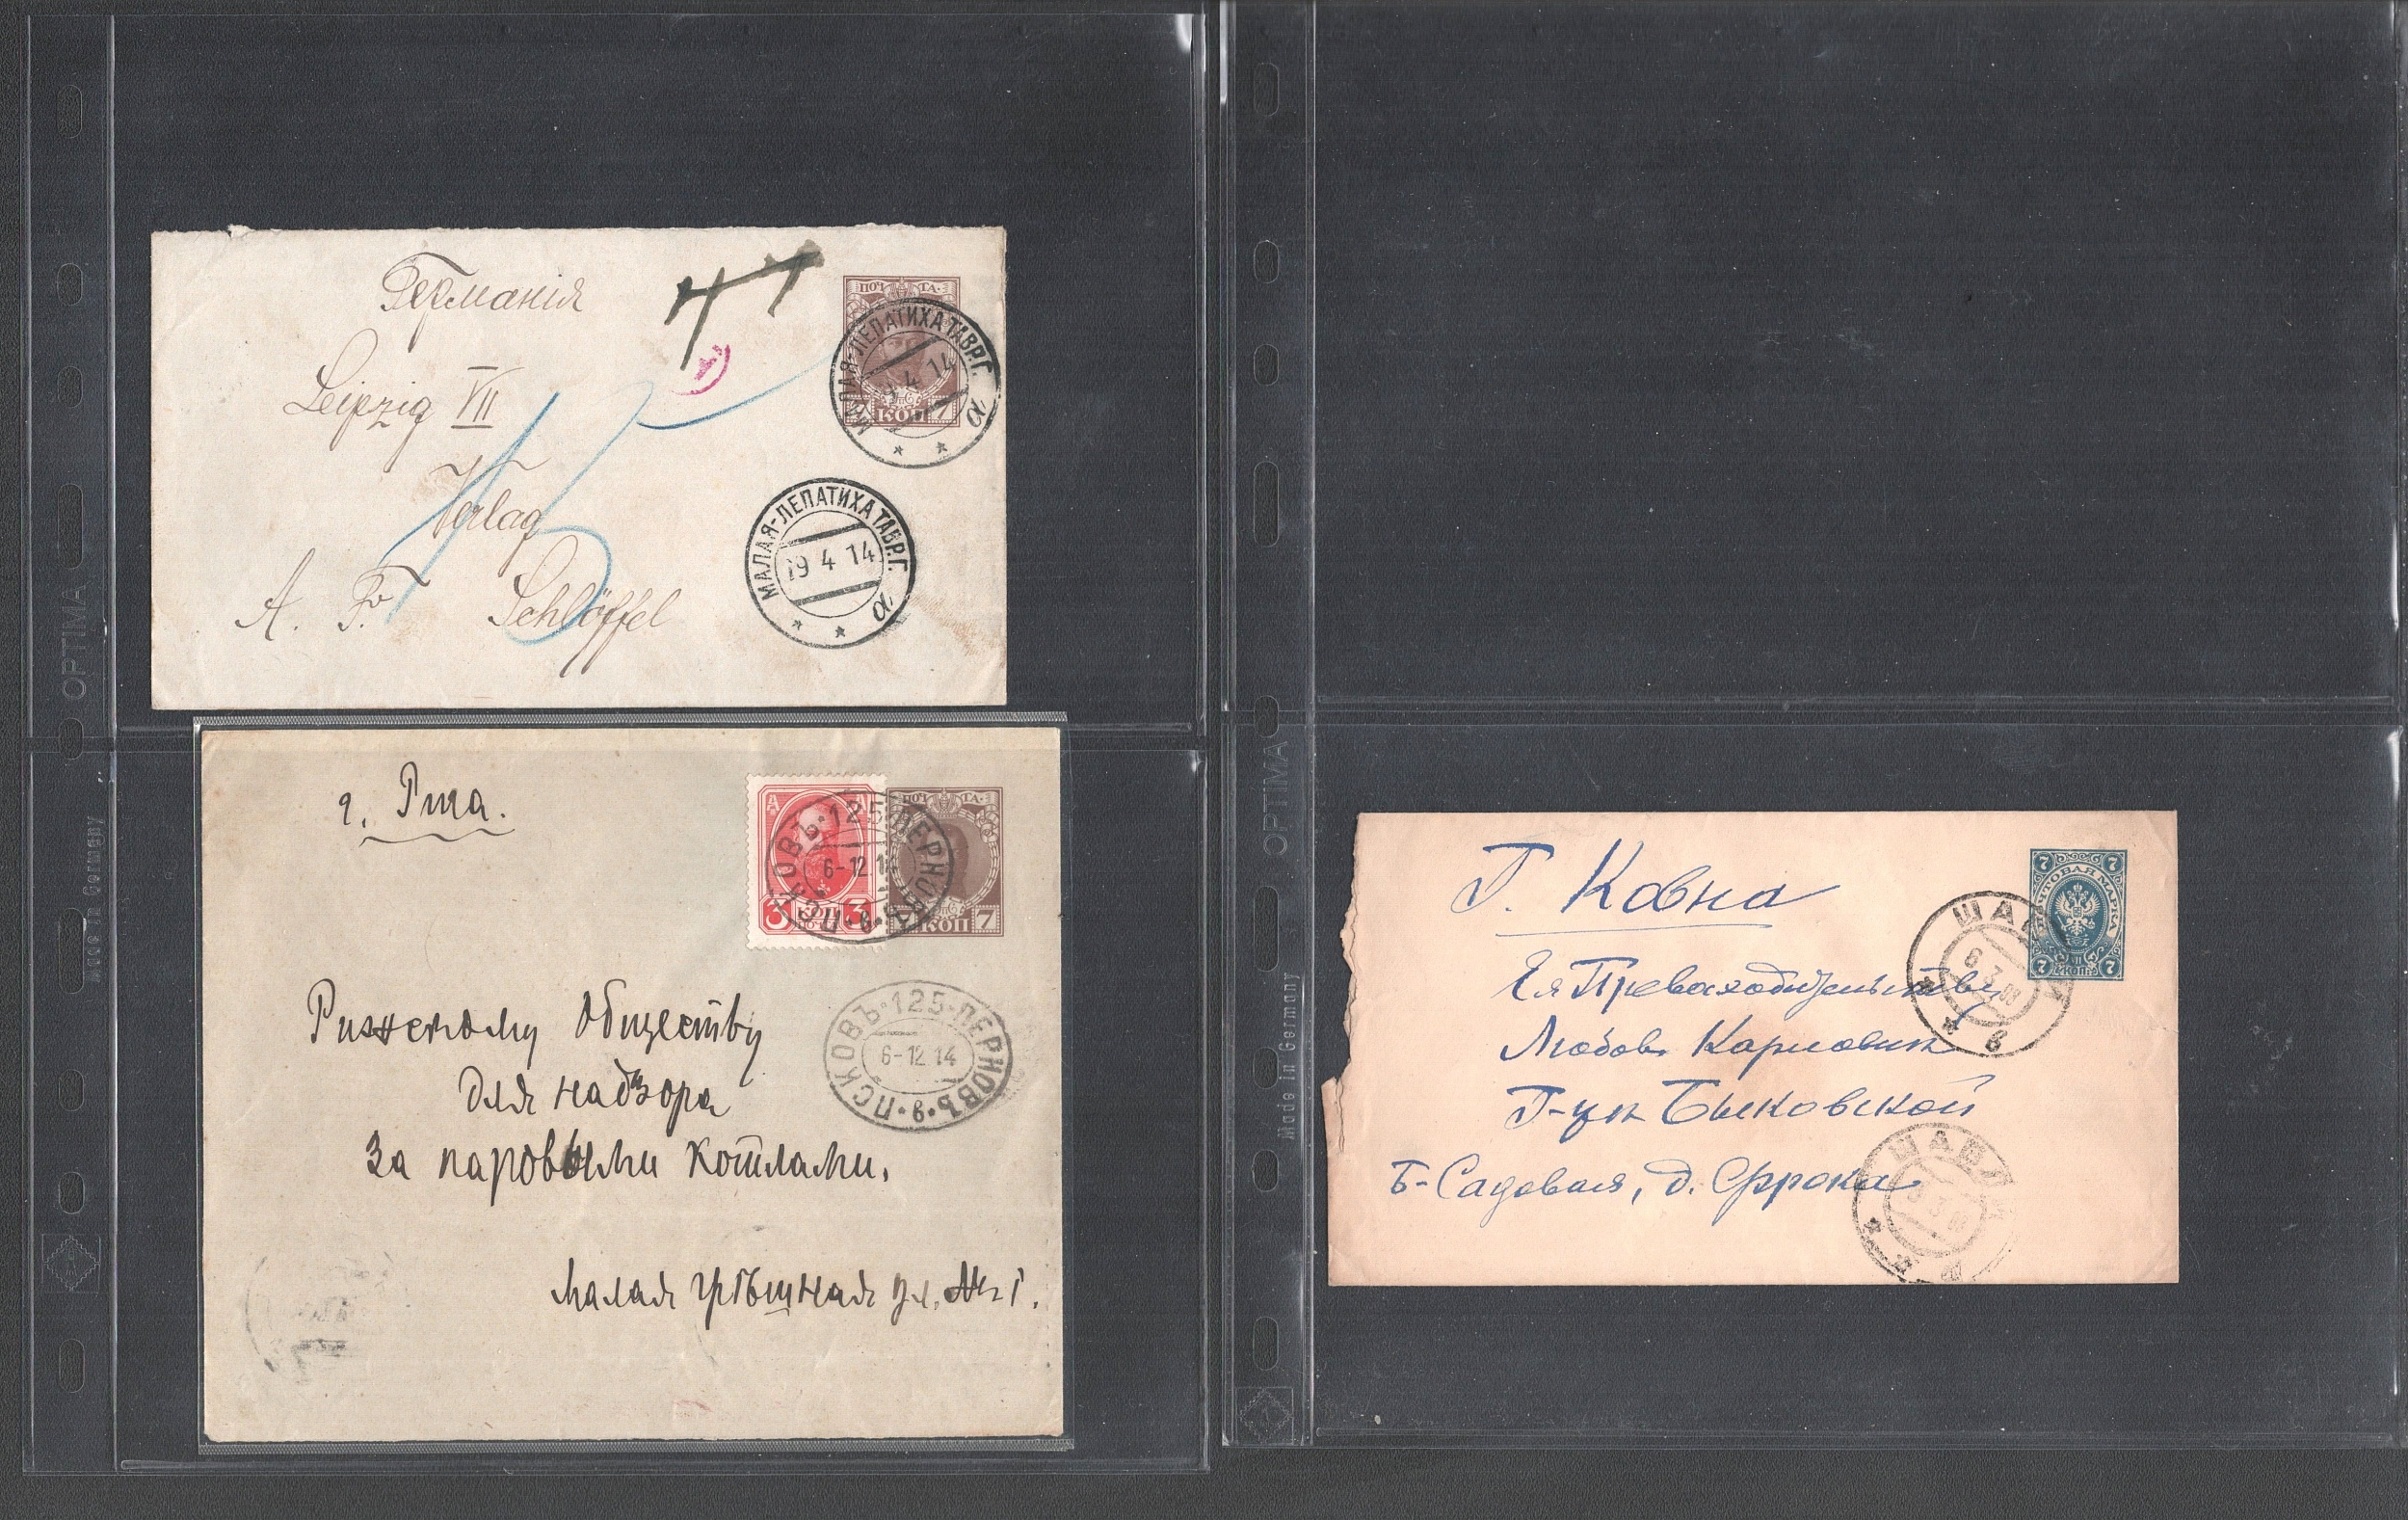 Германія
Leipzig VII
Verlag
A. Fr. Schlöffel
ПОЧТА
КОП 7
МАЛАЯ-ЛЕПАТИХА ТАВР.Г.
9 4 14
МАЛАЯ-ЛЕПАТИХА ТАВР.Г.
19 4 14
OPTIMA
Made in Germany
г. Рига.
3 КОП 3
ПОЧТА
КОП 7
ПСКОВЪ·125·ПЕРНОВЪ
6-12 14
Рижскому Обществу
для надзора
за паровыми котлами.
ПСКОВЪ·125·ПЕРНОВЪ
6-12 14
Малая ул. № 1.
OPTIMA
Made in Germany
Г. Ковна
7 7
ПОЧТОВАЯ МАРКА
7 КОП. 7
6 3 08
Ея Превосходительству
Любовь Карловнѣ
Г-жѣ Быковской
Б-Садовая, д.